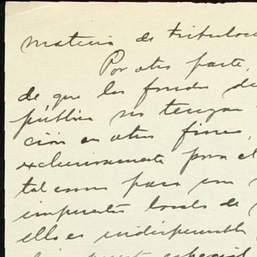 materia de tributac
Por otra parte,
de que los fondos de
pública no tengan
ción en otros fines,
exclusivamente para el
tal como para un
impuestos locales de
ello es indispensable
especial